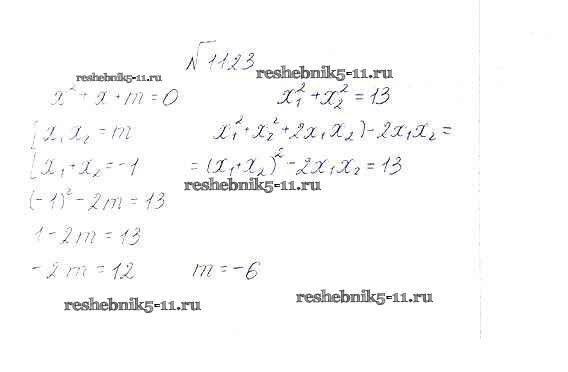 √1123
reshebnik5-11.ru reshebnik5-11.ru
x² + x + m = 0 x₁² + x₂² = 13
[x₁x₂ = m x₁² + x₂² + 2x₁x₂) - 2x₁x₂ =
[x₁ + x₂ = -1 = (x₁ + x₂)² - 2x₁x₂ = 13
reshebnik5-11.ru
(-1)² - 2m = 13
1 - 2m = 13
-2m = 12 m = -6
reshebnik5-11.ru reshebnik5-11.ru